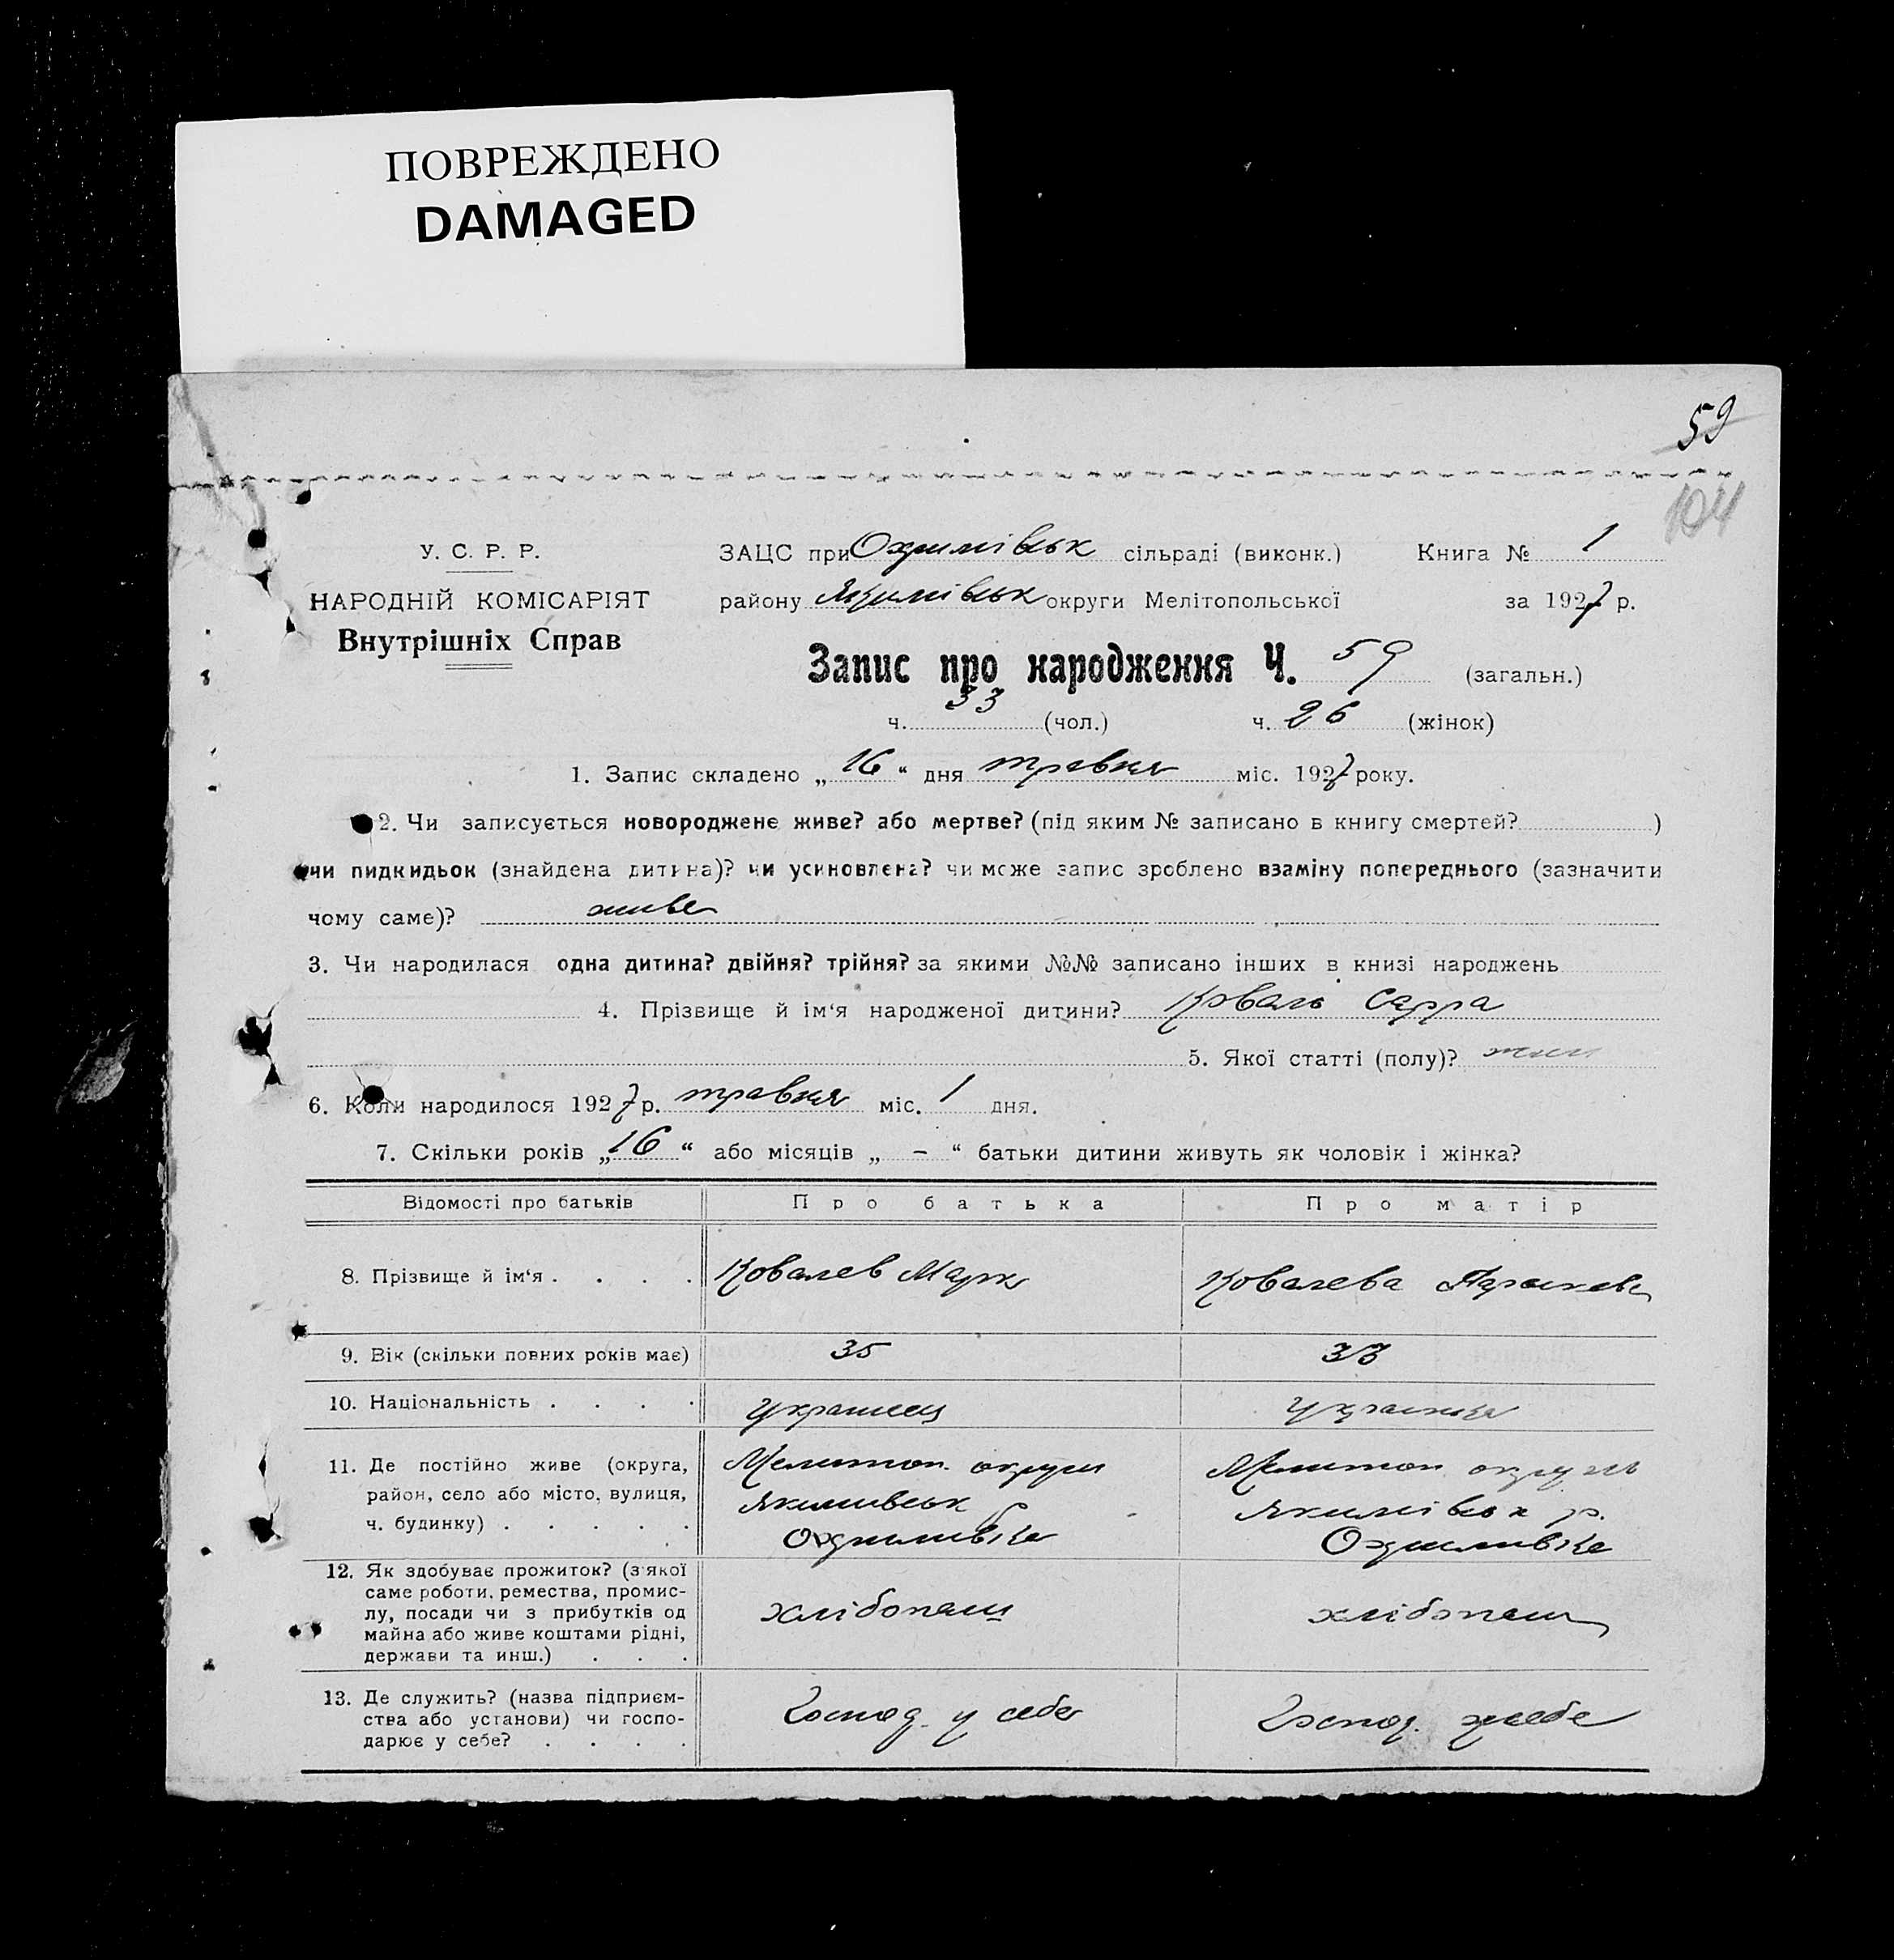 ПОВРЕЖДЕНО
DAMAGED
59
104
У. С. Р. Р.
НАРОДНІЙ КОМІСАРІЯТ
Внутрішніх Справ
ЗАЦС при Охримівськ сільраді (виконк.) Книга № 1
району Якимівськ округи Мелітопольської за 1927 р.
Запис про народження Ч. 59 (загальн.)
ч. 33 (чол.) ч. 26 (жінок)
1. Запис складено „ 16 “ дня травня міс. 1927 року.
2. Чи записується новороджене живе? або мертве? (під яким № записано в книгу смертей? )
чи пидкидьок (знайдена дитина)? чи усиновлена? чи може запис зроблено взаміну попереднього (зазначити
чому саме)? живе
3. Чи народилася одна дитина? двійня? трійня? за якими №№ записано інших в книзі народжень
4. Прізвище й ім‘я народженої дитини? Коваль Сарра
5. Якої статті (полу)? жин
6. Коли народилося 1927 р. травня міс. 1 дня.
7. Скільки років „ 16 “ або місяців „ - “ батьки дитини живуть як чоловік і жінка?
Відомості про батьків Про батька Про матір
8. Прізвище й ім‘я . . . . Ковалев Марк Ковалева Параскева
9. Вік (скільки повних років має) 35 33
10. Національність . . . . Украинец Украинка
11. Де постійно живе (округа, Мелитоп. округи Мелитоп округи
район, село або місто, вулиця, Якимивськ р Якимівськ р.
ч. будинку) . . . . . Охримивка Охримивка
12. Як здобуває прожиток? (з якої
саме роботи, ремества, промис-
лу, посади чи з прибутків од хлібопаш хлібопаш
майна або живе коштами рідні,
держави та инш.) . . .
13. Де служить? (назва підприєм-
ства або установи) чи госпо- Господ. у себе Господ. у себе
дарює у себе? . . . .